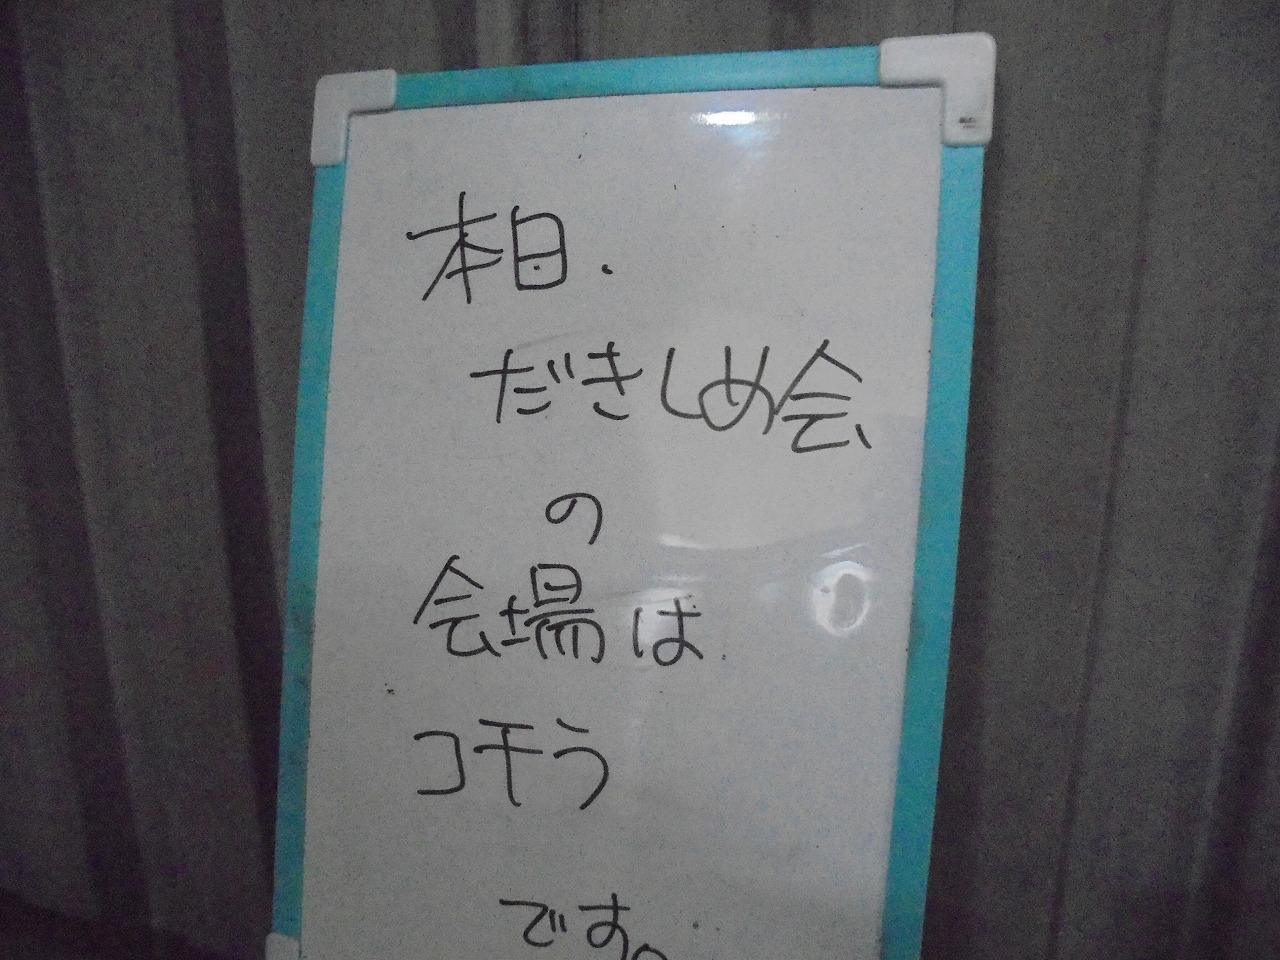 本日.
だきしめ会
の
会場は
コチラ
です。